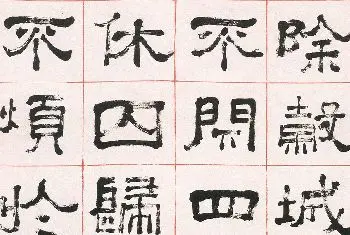 除穀城
不閉四
休囚歸
不煩於